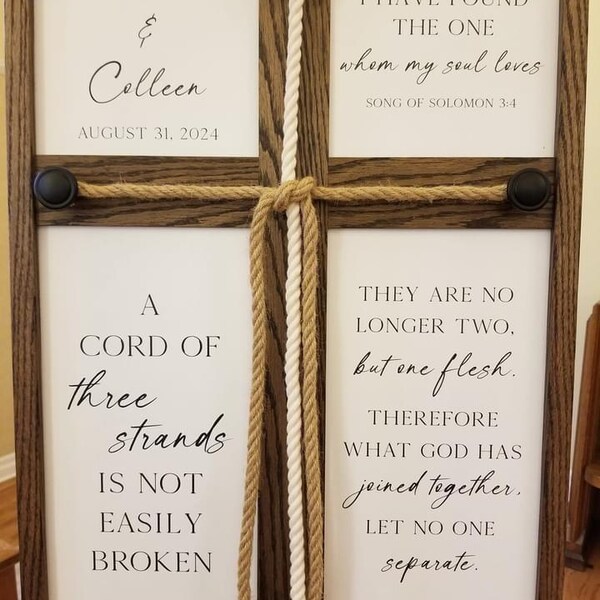 &
Colleen
AUGUST 31, 2024
I HAVE FOUND
THE ONE
whom my soul loves
SONG OF SOLOMON 3:4
A
CORD OF
three
strands
IS NOT
EASILY
BROKEN
THEY ARE NO
LONGER TWO,
but one flesh.
THEREFORE
WHAT GOD HAS
joined together,
LET NO ONE
separate.